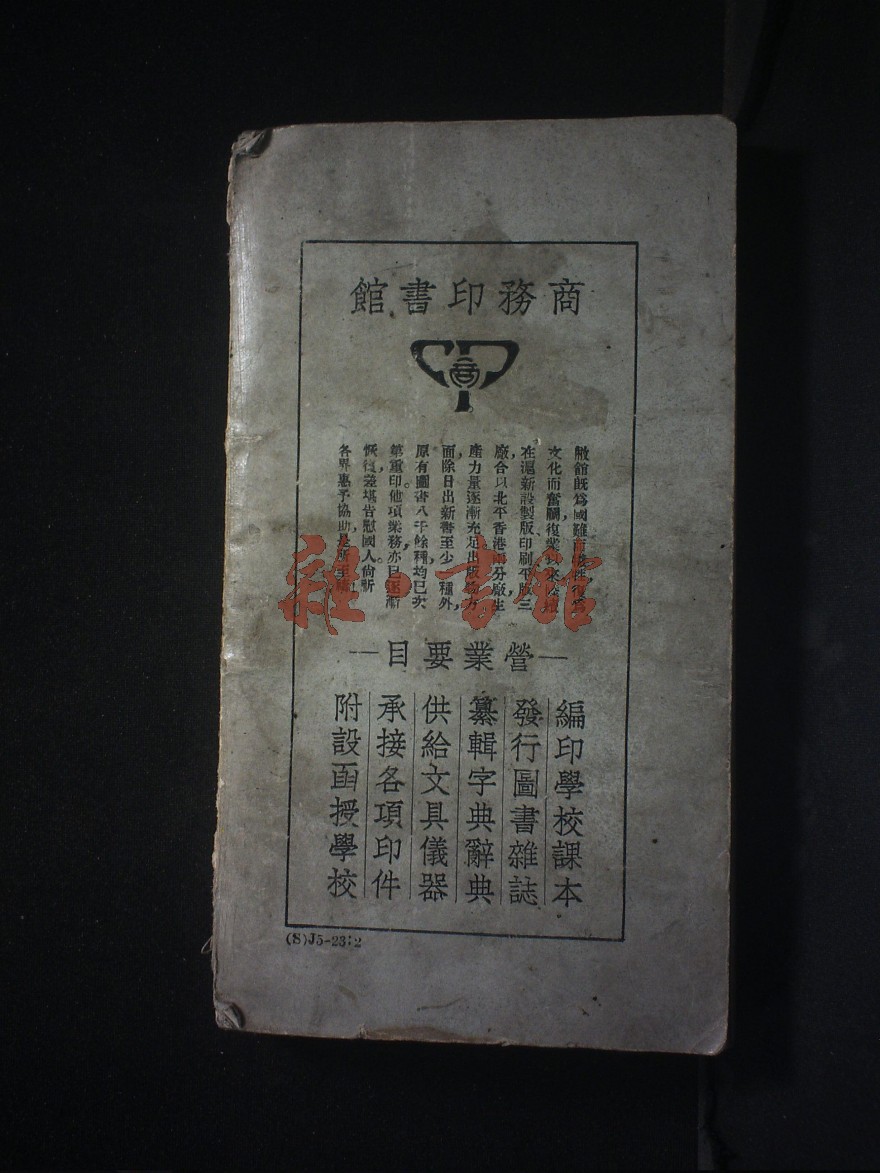 商務印書館
敝館旣爲國難而犧牲,復爲
文化而奮鬭,復業以來,陸續
在滬新設製版印刷平版三
廠,合以北平香港兩分廠生
產力量逐漸充足,出版物方
面除日出新書至少一種外,
原有圖書八千餘種,均已次
第重印。他項業務,亦已逐漸
恢復,差堪告慰國人。尙祈
各界惠予協助,是所至禱。
雜·書館
—營業要目—
編印學校課本
發行圖書雜誌
纂輯字典辭典
供給文具儀器
承接各項印件
附設函授學校
(S)J5-23:2